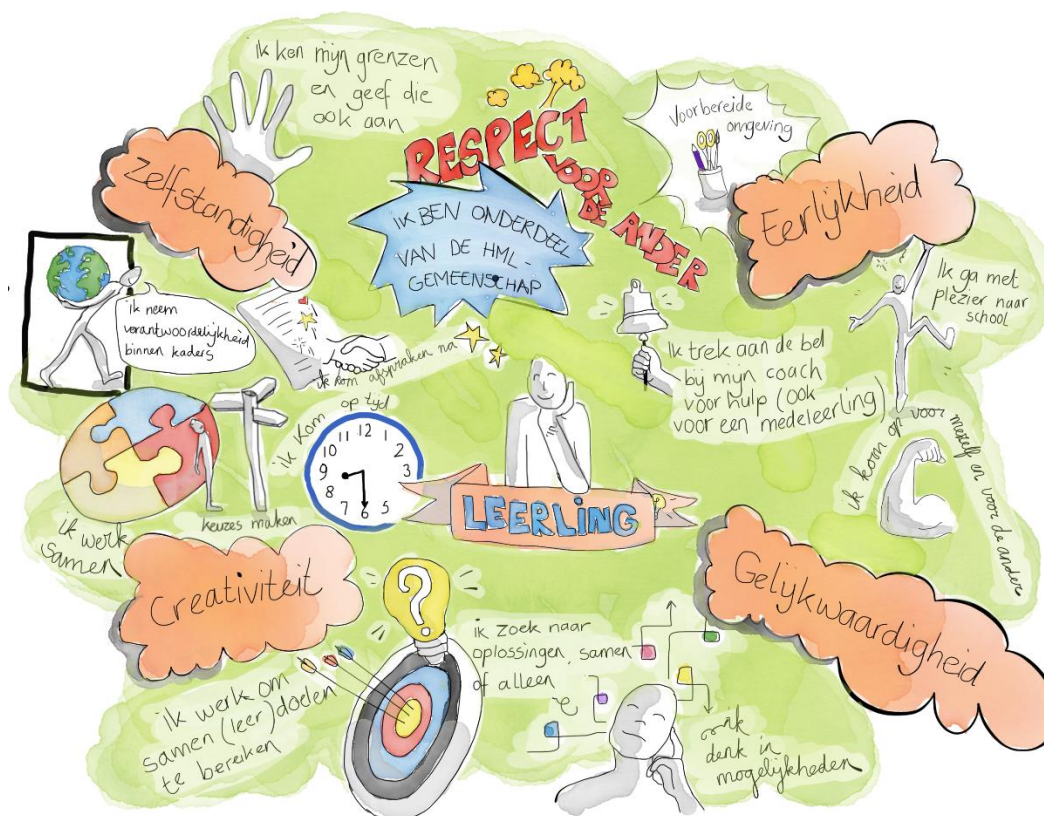 ik ken mijn grenzen
en geef die
ook aan
RESPECT
VOOR
DE ANDER
Voorbereide
omgeving
Zelfstandigheid
Eerlijkheid
IK BEN ONDERDEEL
VAN DE HML-
GEMEENSCHAP
ik neem
verantwoordelijkheid
binnen kaders
ik kom afspraken na
Ik ga met
plezier naar
school
Ik trek aan de bel
bij mijn coach
voor hulp (ook
voor een medeleerling)
ik kom op tijd
12
1
2
3
4
5
6
7
8
9
10
11
ik kom op voor
mezelf en voor de ander
ik werk
samen
keuzes maken
LEERLING
Creativiteit
Gelijkwaardigheid
?
ik zoek naar
oplossingen, samen
of alleen
ik werk om
samen (leer)doelen
te bereiken
ik
denk in
mogelijkheden